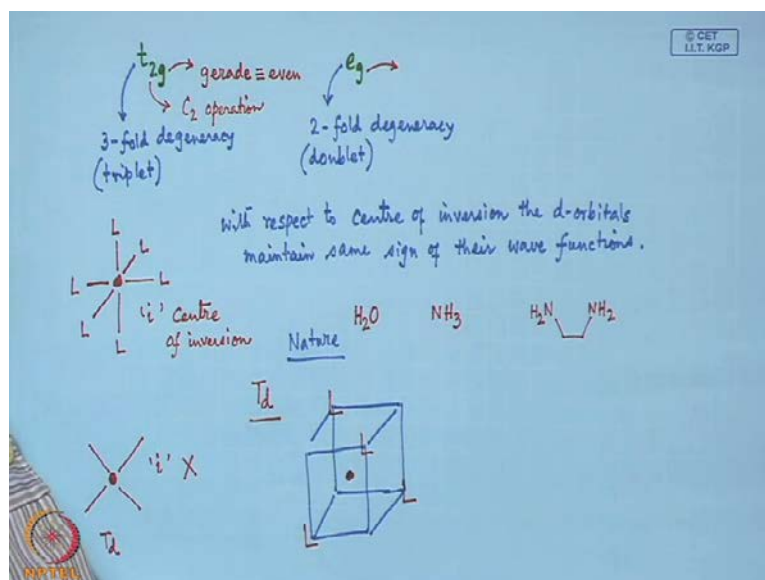 © CET
I.I.T. KGP
t2g → gerade ≡ even
C2 operation
3-fold degeneracy
(triplet)
eg →
2-fold degeneracy
(doublet)
with respect to centre of inversion the d-orbitals
maintain same sign of their wave functions.
L
L
L
L
L
L
'i' centre
of inversion
Nature
H2O
NH3
H2N NH2
Td
L
L
L
L
'i' X
Td
NPTEL